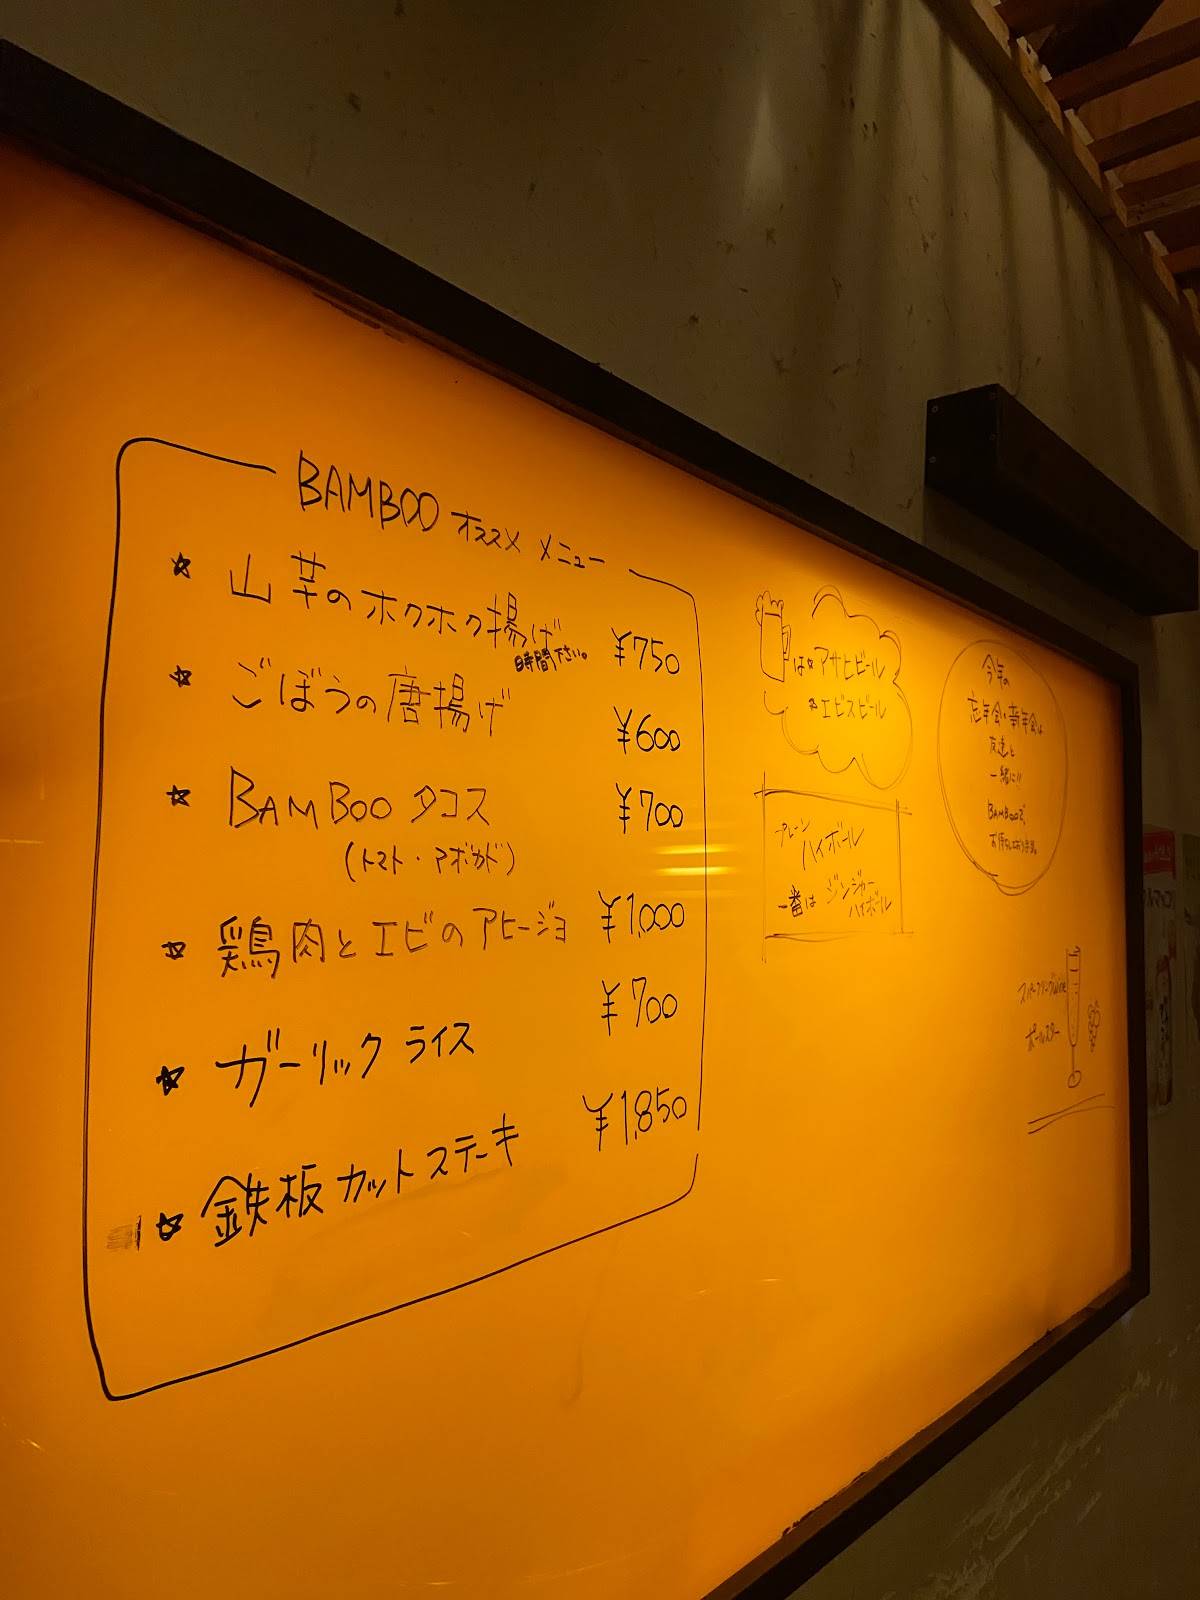 BAMBOO オススメ メニュー
☆ 山芋のホクホク揚げ ¥750
時間下さい。
☆ ごぼうの唐揚げ ¥600
☆ BAMBOO タコス ¥700
(トマト・アボカド)
☆ 鶏肉とエビのアヒージョ ¥1,000
☆ ガーリックライス ¥700
☆ 鉄板カットステーキ ¥1,850
は☆アサヒビール
☆エビスビール
プレーン
ハイボール
一番は ジンジャー
ハイボール
今年の
忘年会・新年会は
友達と
一緒に!!
BAMBOOで
お待ちしております。
スパークリングwine
ポールスター